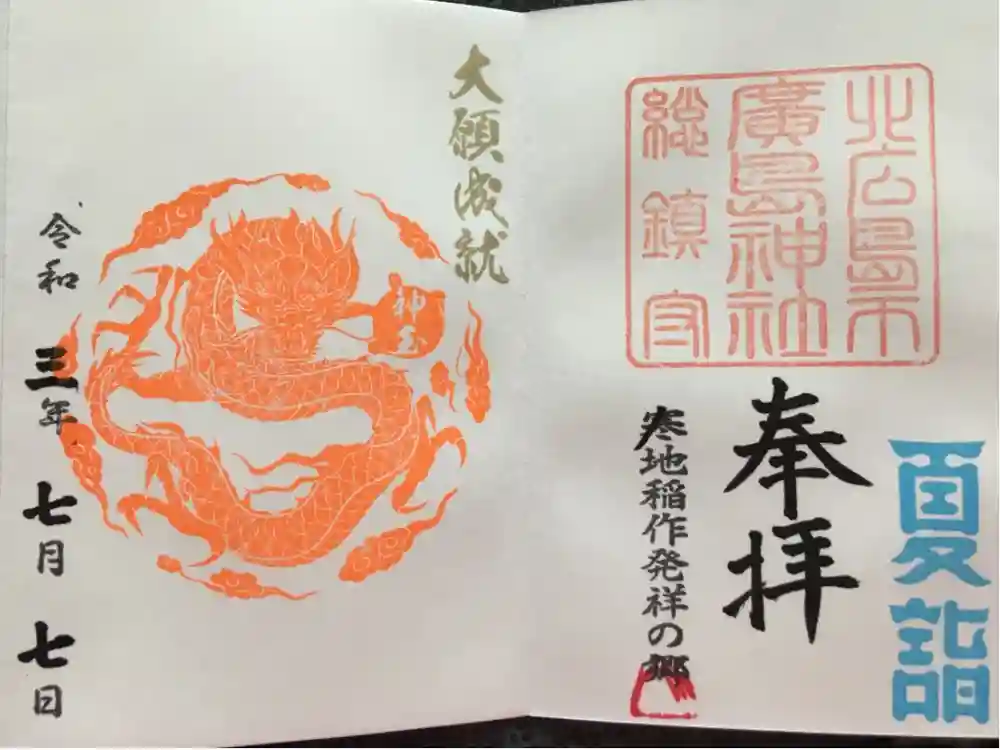 夏詣
北広島市
廣島神社
総鎮守
奉拝
寒地稲作発祥の郷
大願成就
神玉
令和三年七月七日